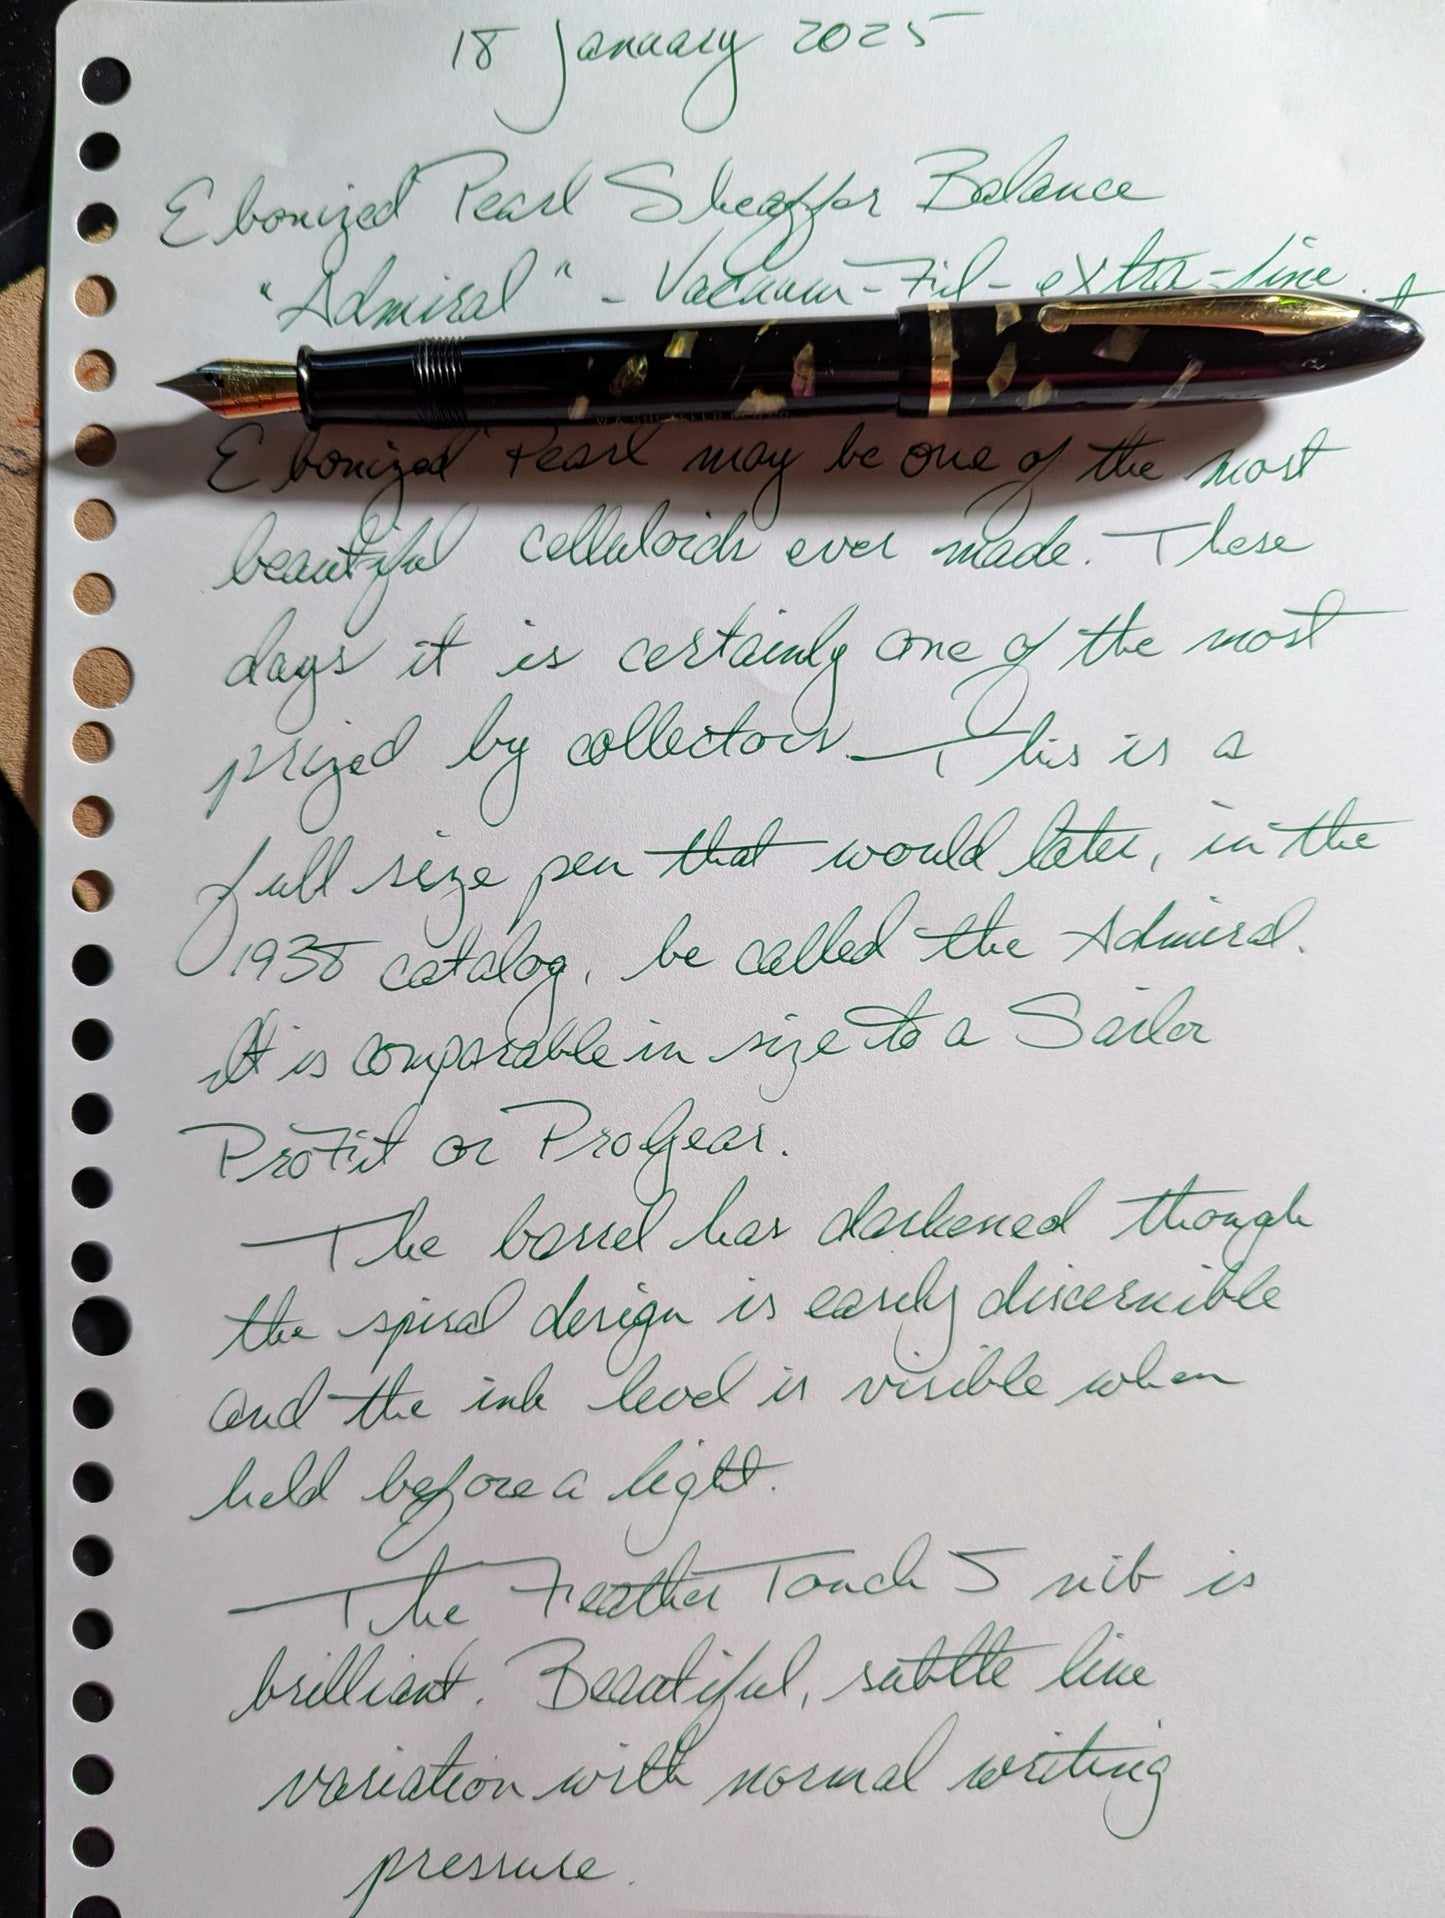 18 January 2025
Ebonized Pearl Sheaffer Balance
"Admiral" - Vacuum-Fil - extra-fine
Ebonized Pearl may be one of the most
beautiful celluloids ever made. These
days it is certainly one of the most
prized by collectors. This is a
full size pen that would later, in the
1938 catalog, be called the Admiral.
It is comparable in size to a Sailor
ProFit or ProGear.
The barrel has darkened though
the spiral design is easily discernible
and the ink level is visible when
held before a light.
The Feather Touch 5 nib is
brilliant. Beautiful, subtle line
variation with normal writing
pressure.